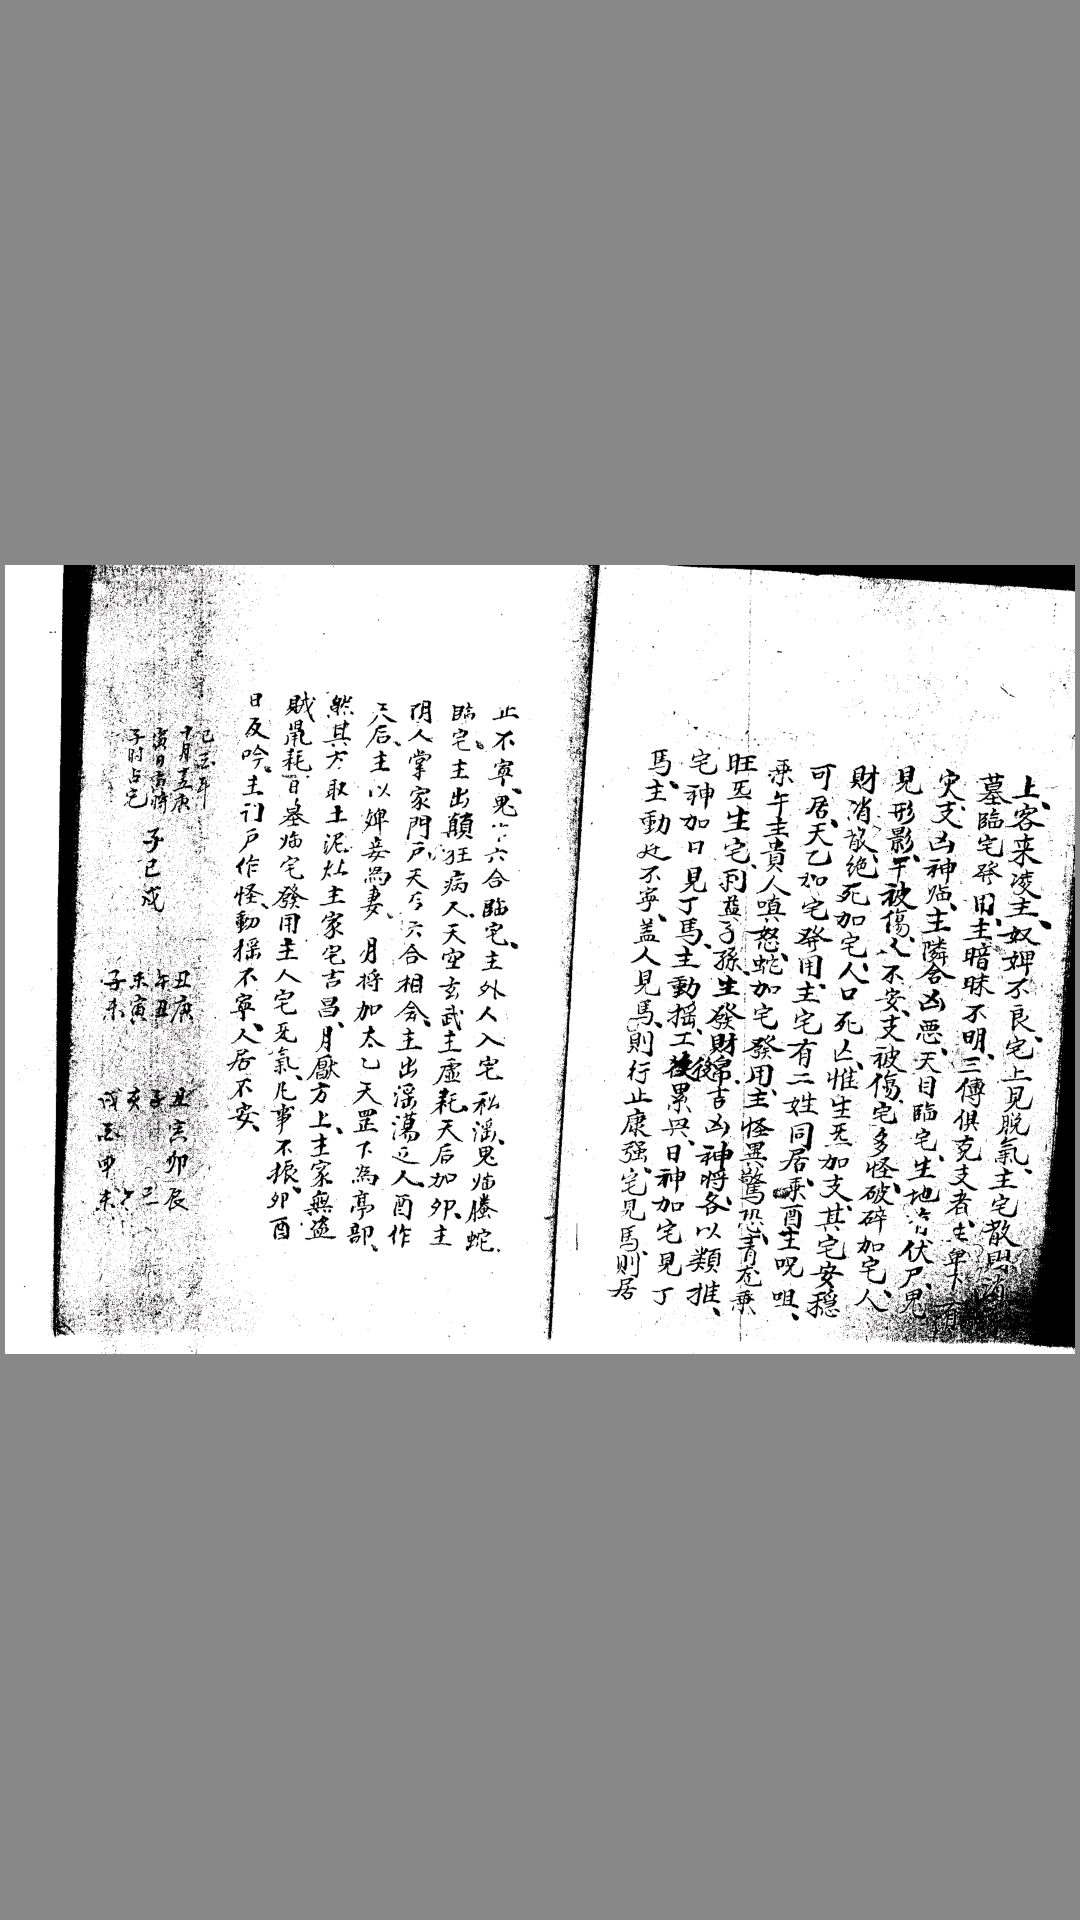 上、客来凌主、奴婢不良、宅上見脫氣、主宅散
墓臨宅發用、主暗昧不明、三傳俱克支者、
灾、支凶神临、主隣舍凶惡、天目臨宅、生地伏尸、鬼
見形影、干被傷、人不安、支被傷、宅多怪、破碎加宅、人
財消散、絶死加宅、人口死亡、惟生炁加支、其宅安穩
可居、天乙加宅發用、主宅有二姓同居、乘酉主呪咀、
乘午主貴人嗔怒、蛇加宅發用、主怪異驚恐、青龙乘
旺炁生宅、利益子孫、生發財帛、吉凶神將、各以類推、
宅神加日見丁馬、主動摇、工後累兴、日神加宅見丁
馬、主動处不寧、盖人見馬、則行止康强、宅見馬、則居
止不寧、鬼六合臨宅、主外人入宅私滛、鬼临螣蛇
臨宅、主出顛狂病人、天空玄武主虛耗、天后加卯、主
阴人掌家門戸、天后六合相会、主出滛蕩之人、酉作
天后、主以婢妾為妻、月將加太乙天罡下為亭部、
然其方取土泥灶、主家宅吉昌、月厭方上、主家無盗
賊鼠耗、日墓临宅發用、主人宅死氣、凡事不振、卯酉
日反吟、主门戸作怪、動摇不寧、人居不安、
年
十月庚
寅日寅將
子时占宅
子巳戌
丑庚
午丑
未寅
子未
丑寅卯辰
子
亥
申未